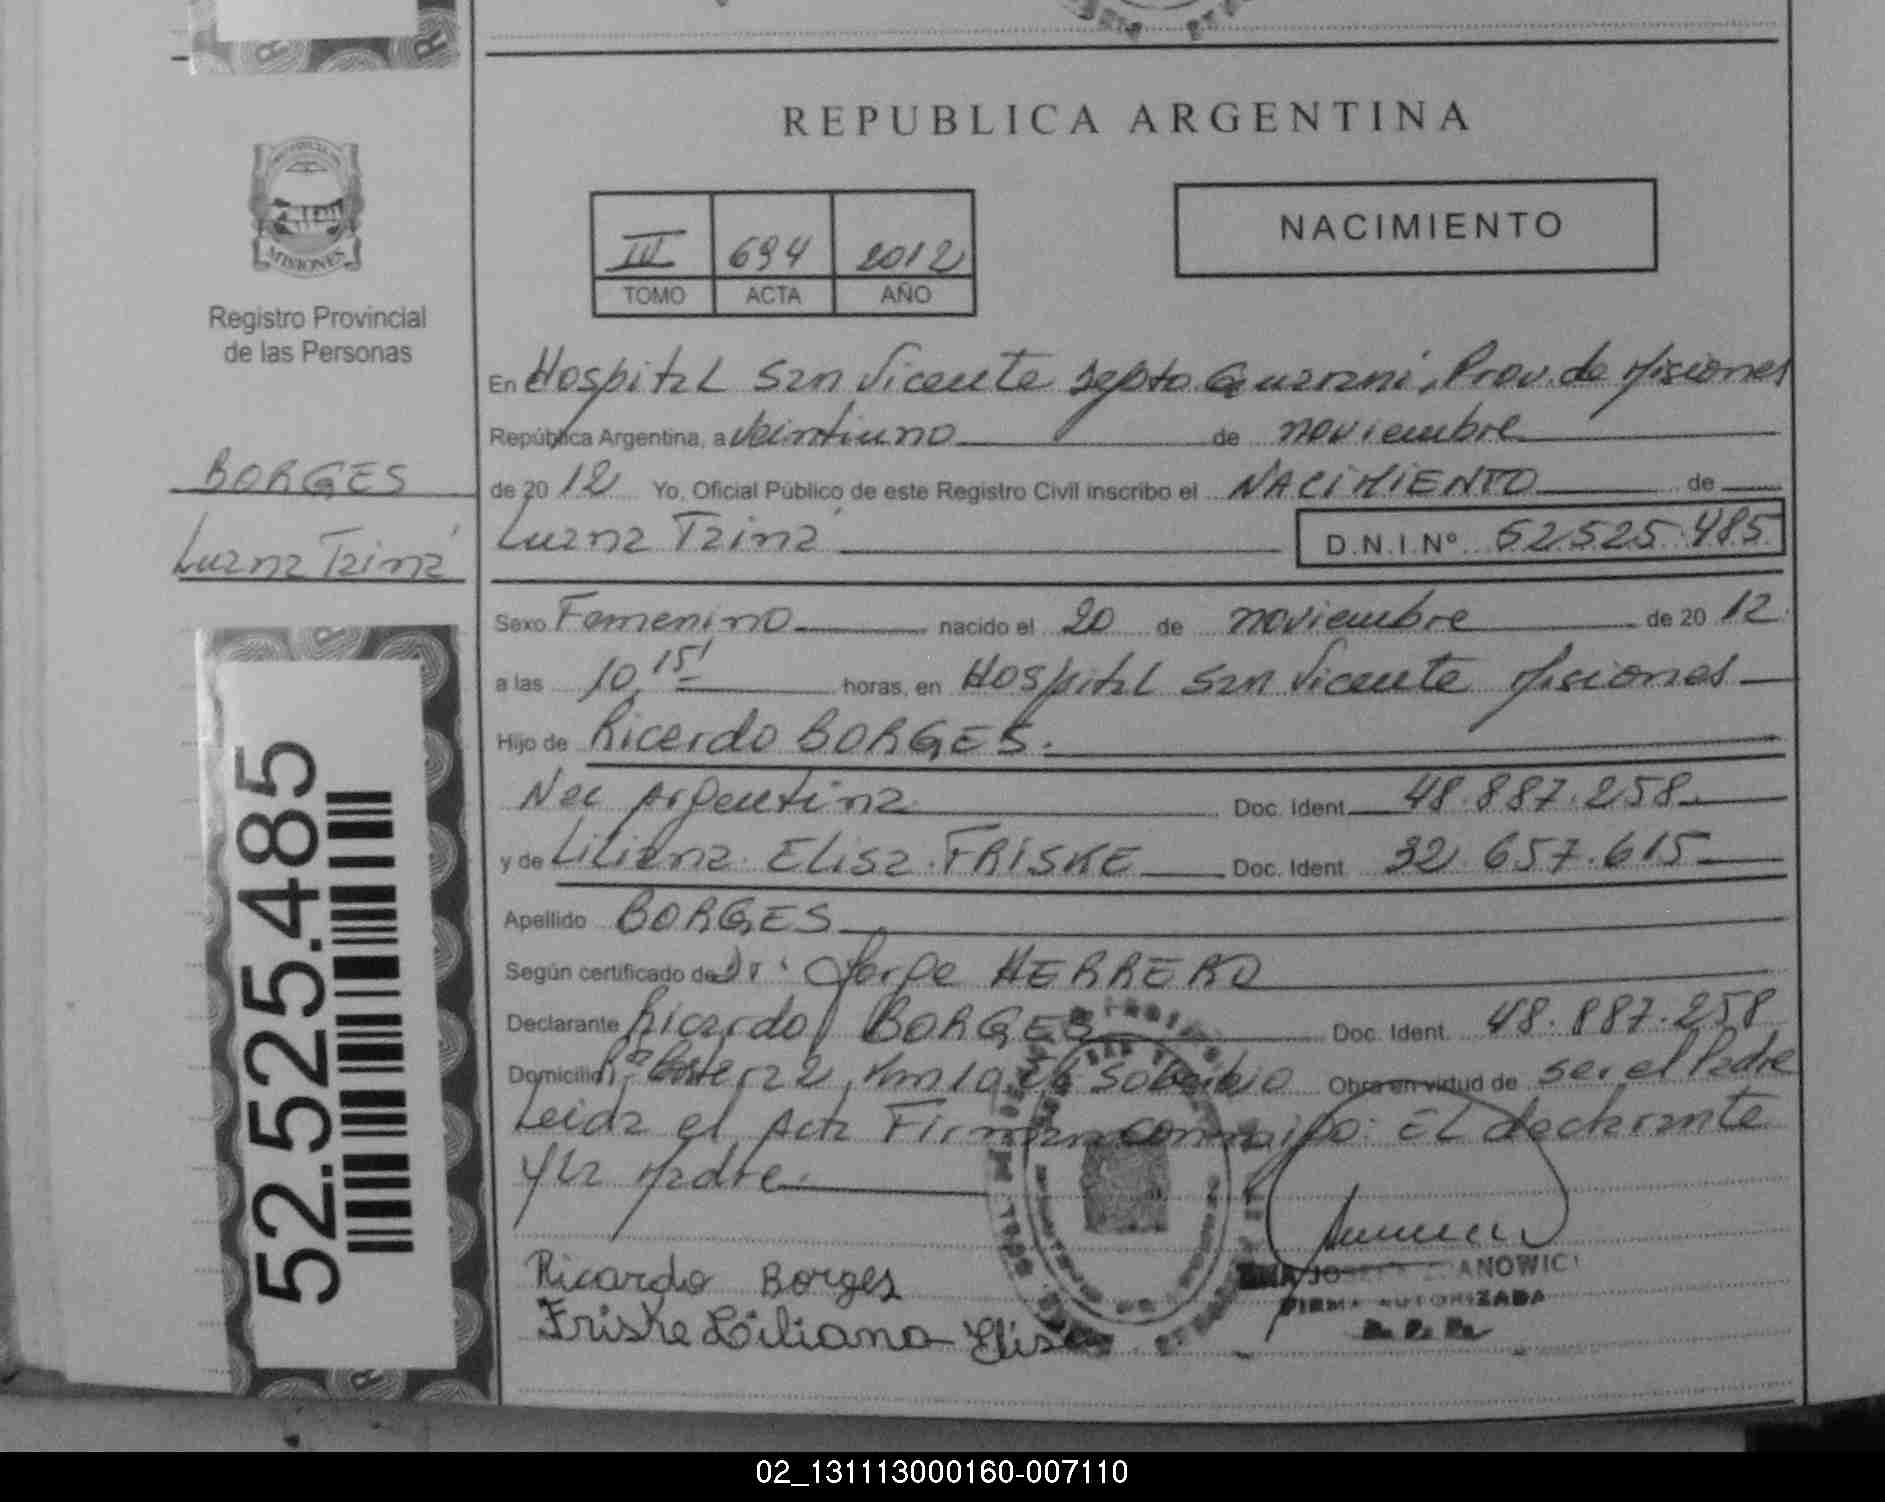 REPUBLICA ARGENTINA
MISIONES
Registro Provincial
de las Personas
III 694 2012
TOMO ACTA AÑO
NACIMIENTO
En Hospital San Vicente Depto Guarani, Prov. de Misiones
República Argentina, a Veintiuno de noviembre
BORGES
de 20 12 Yo, Oficial Público de este Registro Civil inscribo el NACIMIENTO de
Luana Tainá
Luana Tainá D.N.I.Nº 52.525.485
Sexo Femenino nacido el 20 de noviembre de 20 12
a las 10,15' horas, en Hospital San Vicente Misiones
Hijo de Ricardo BORGES.
Nac Argentina Doc. Ident. 48.887.258
y de Liliana Elisa FRISKE Doc. Ident. 32.657.615
Apellido BORGES
Según certificado de Dr. Jorge HERRERO
Declarante Ricardo BORGES Doc. Ident. 48.887.258
Domicilio 22, Km 10 El Soberbio Obra en virtud de ser el Padre
Leida el Acta Firman conmigo: El declarante
y la Madre.
52.525.485
Ricardo Borges
Friske Liliana Elisa
FIRMA AUTORIZADA
02_131113000160-007110